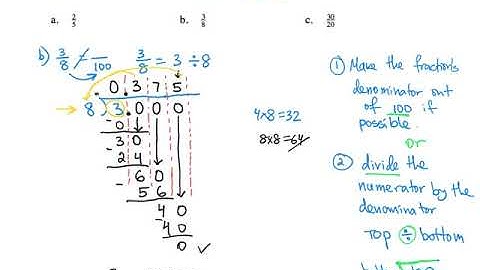 a. 2/5 b. 3/8 c. 30/20
b) 3/8 ≠ /100 3/8 = 3 ÷ 8
0.375
8 ) 3.000
-0
-30
24
-60
56
-40
40
0 ✓
4x8=32
8x8=64
① Make the fraction's
denominator out
of 100 if
possible.
or
② divide the
numerator by the
denominator
TOP ÷ bottom